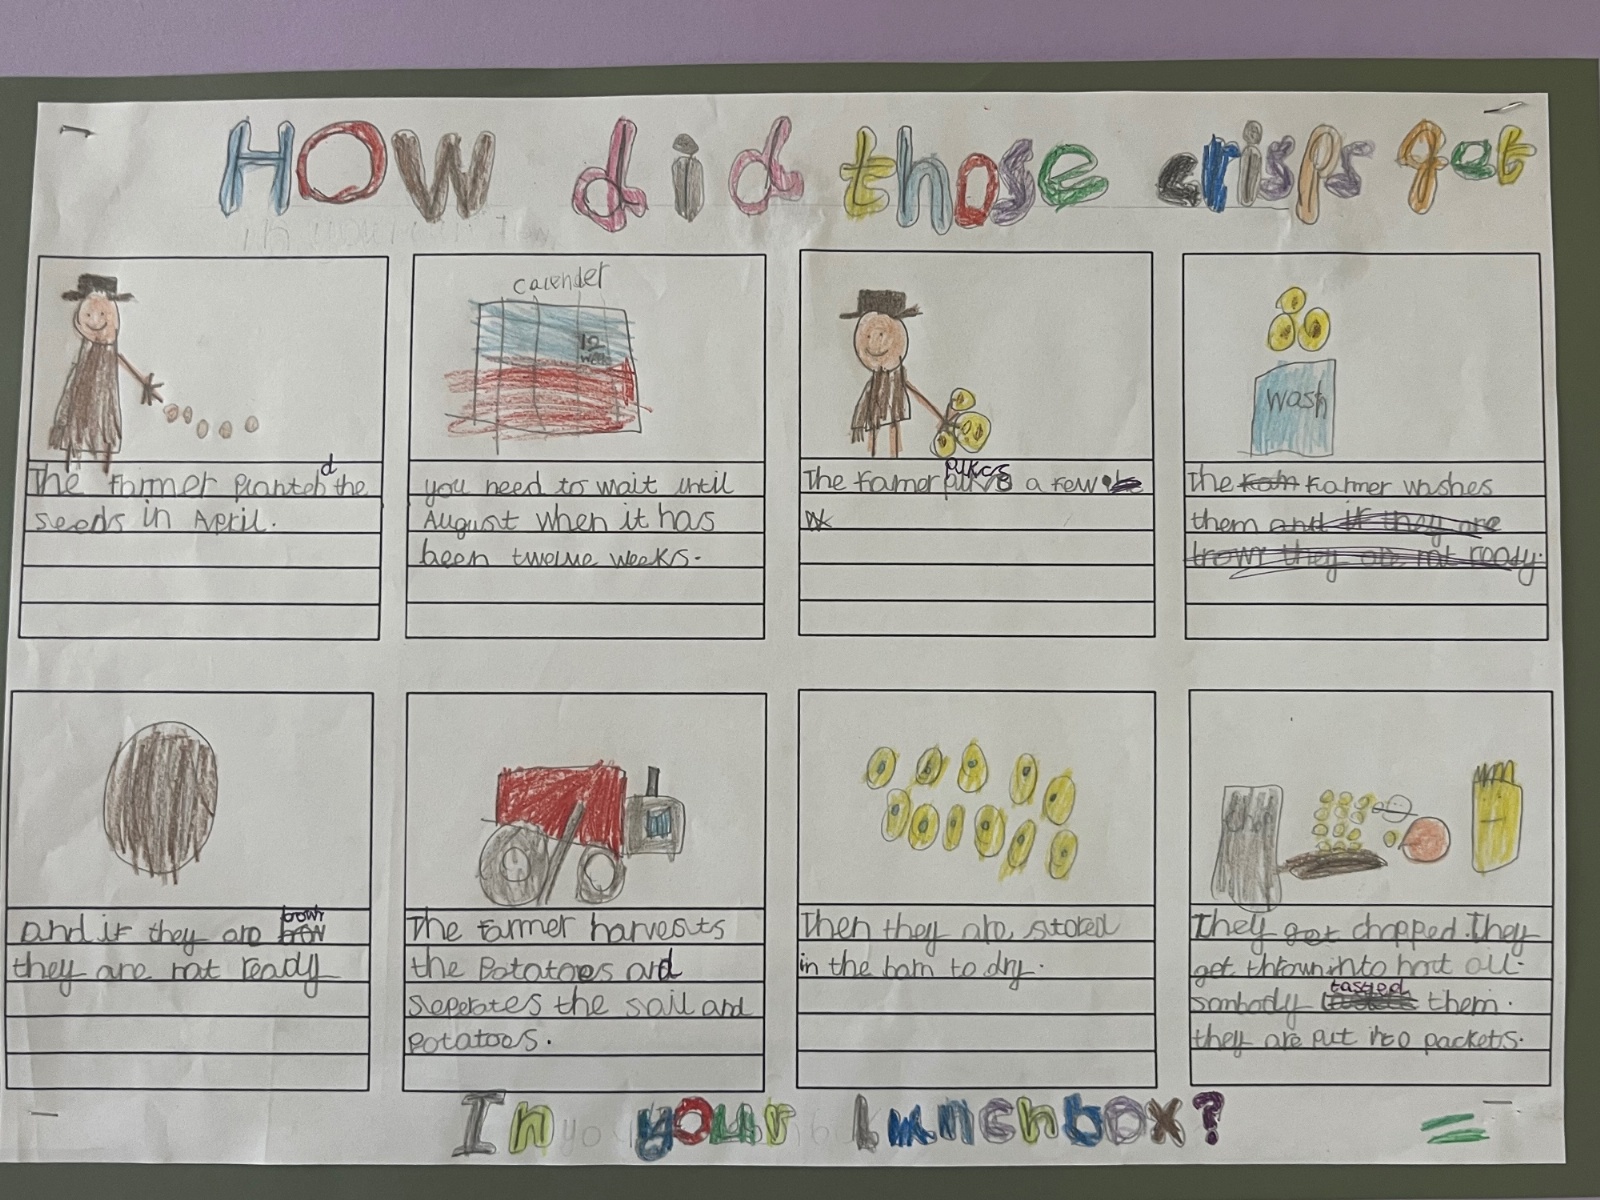 How did those crisps get
calender
12
wash
The farmer planted the
seeds in April.
you need to wait until
August when it has
been twelve weeks.
The farmer pikcs a few
The farmer washes
them and if they are
brown they are not ready.
and if they are bown
they are not ready
The farmer harvests
the potatoes and
seperates the soil and
potatoes.
Then they are stored
in the barn to dry.
chop
They get chopped. They
get thrown into hot oil.
sombody tasted them.
they are put into packets.
In your lunchbox?